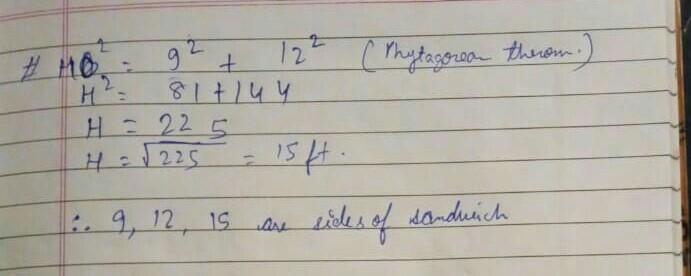 # H² = 9² + 12² (Phytagorean therom.)
H² = 81+144
H = 225
H = √225 = 15 ft.
∴ 9, 12, 15 are sides of sandwich